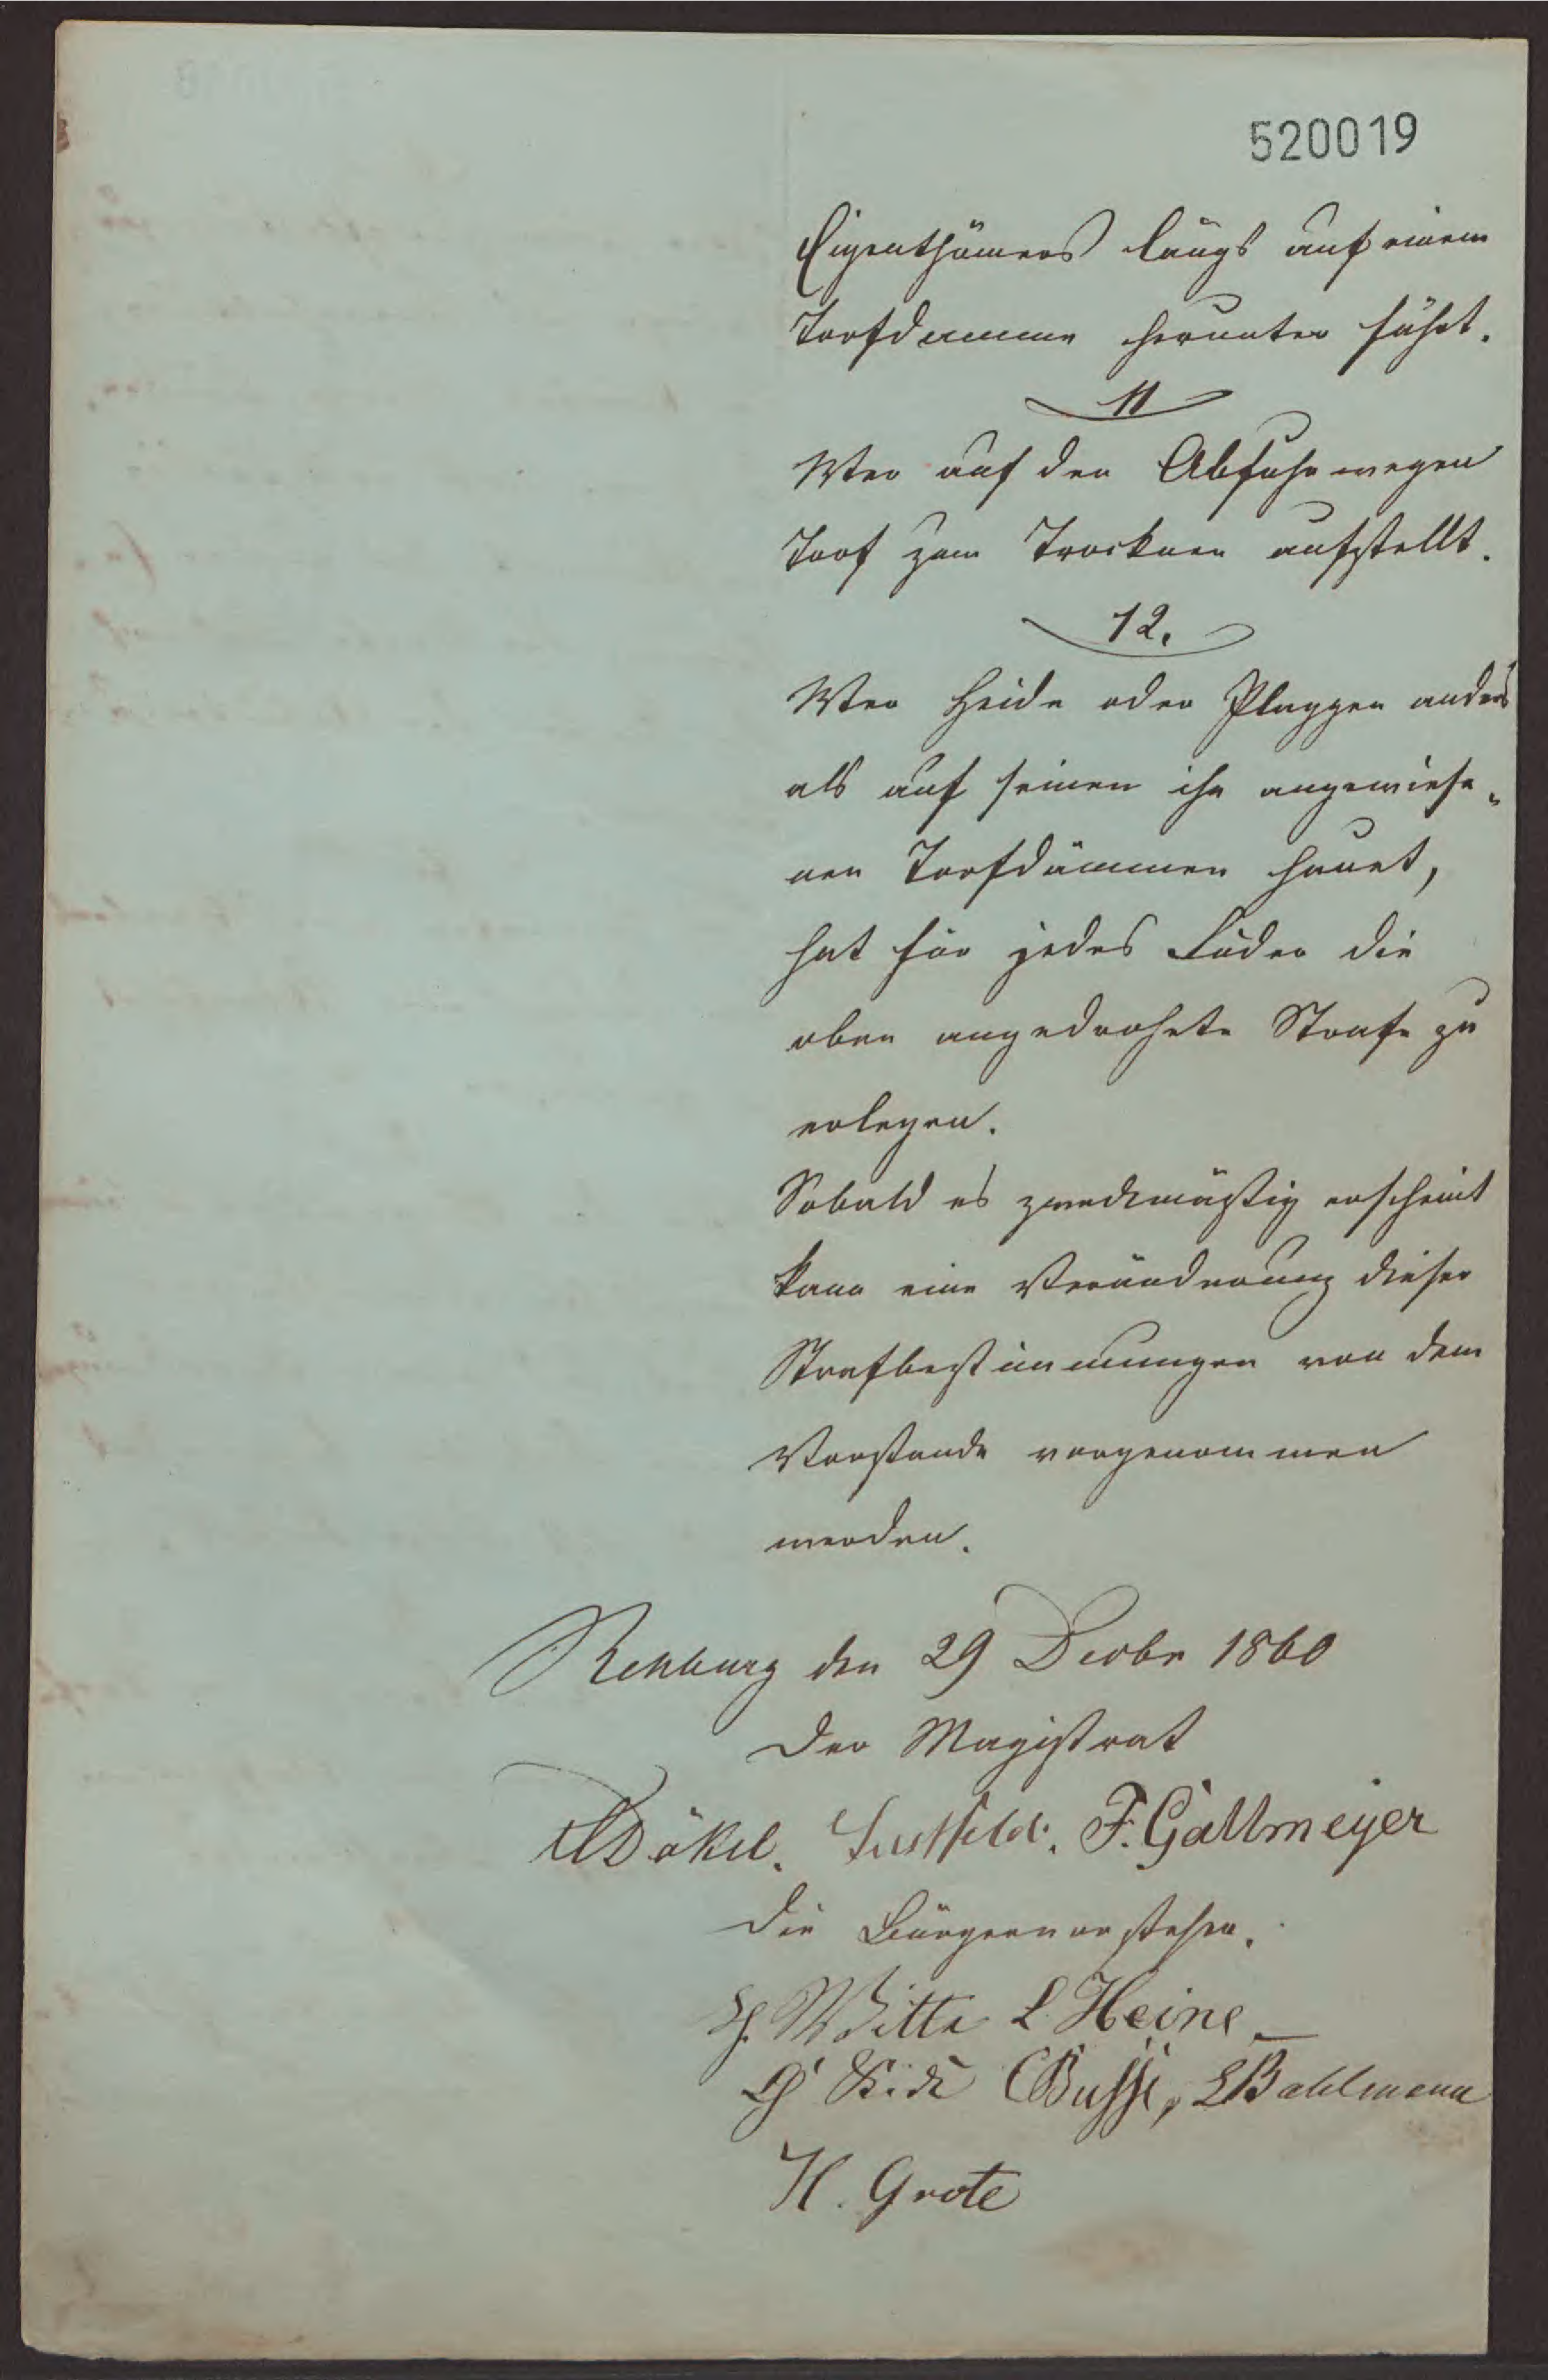 520019
Eigenthümers längs auf einem
Torfdamme herunter führt.
11
Wer auf den Abfuhrwegen
Torf zum Trocknen aufstellt.
12.
Wer Heide oder Plaggen anders
als auf seinen ihn angewiese„
nen Torfdämmen hauet,
hat für jedes Fuder die
oben angedrohete Strafe zu
erlegen.
Sobald es zweckmäßig erscheint
kann eine Veränderung dieser
Strafbestimmungen von dem
Vorstande vorgenommen
werden.
Rehburg den 29 Decbr 1860
Der Magistrat
Däkel. Lustfeld. F. Gallmeyer
Die Bürgervorsteher.
Witte L Heine
CBusse, LBahlmann
H. Grote